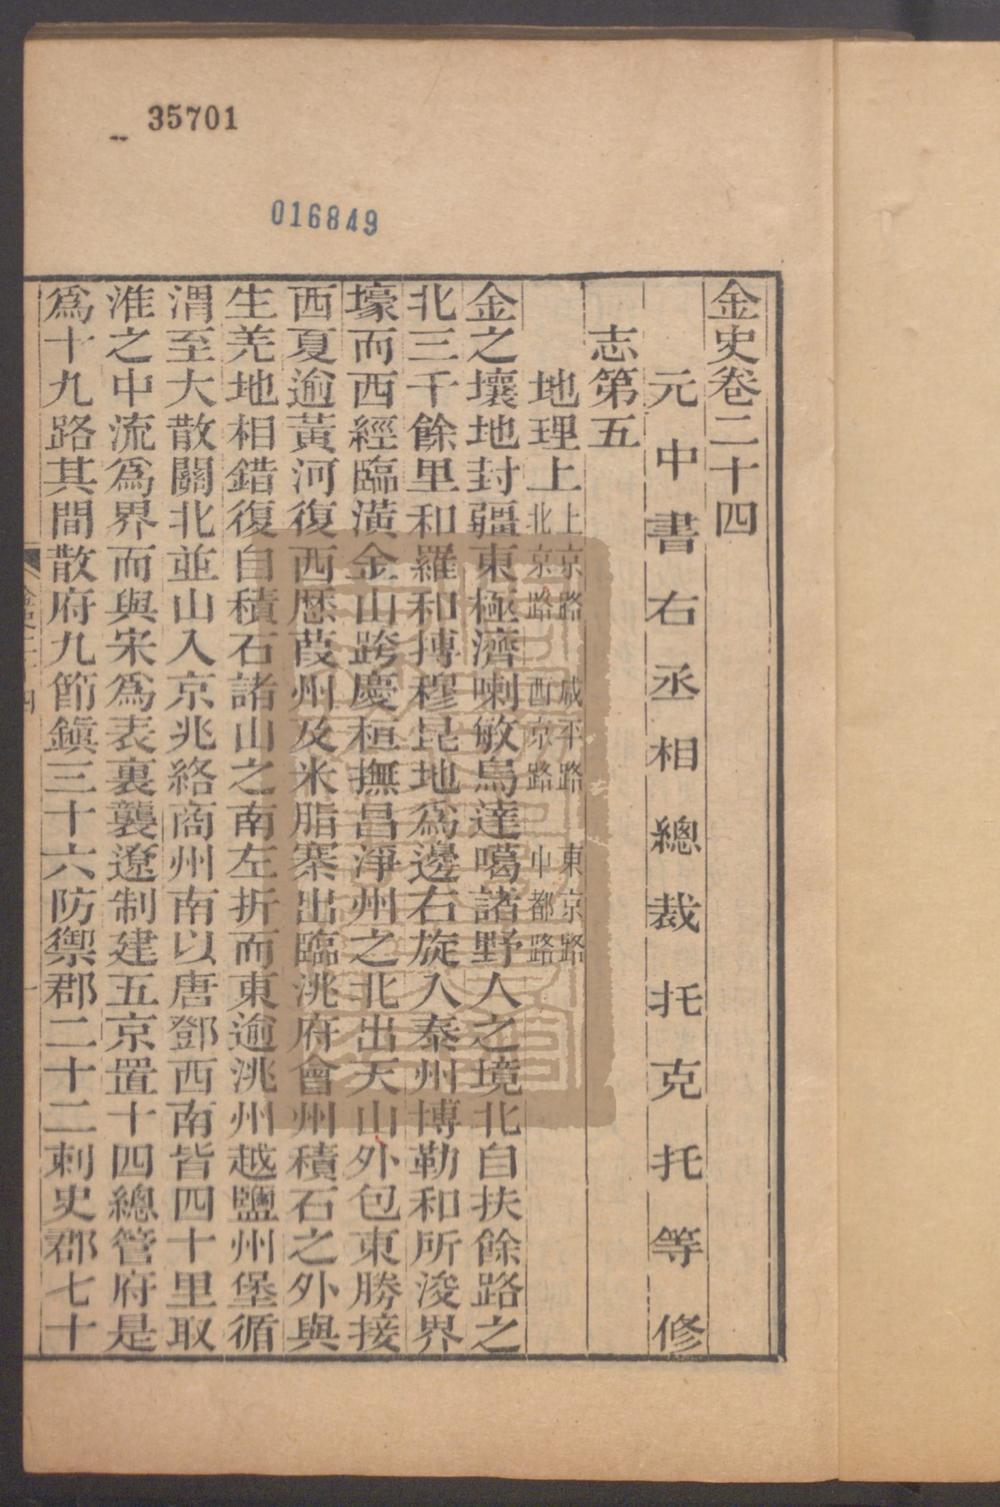 35701
016849
金史卷二十四
元中書右丞相總裁托克托等修
志第五
地理上 上京路 咸平路 東京路 北京路 西京路 中都路
金之壤地封疆東極濟喇敏烏達噶諸野人之境北自扶餘路之
北三千餘里和羅和摶穆昆地爲邊右旋入泰州博勒和所浚界
壕而西經臨潢金山跨慶桓撫昌淨州之北出天山外包東勝接
西夏逾黃河復西歷葭州及米脂寨出臨洮府會州積石之外與
生羌地相錯復自積石諸山之南左折而東逾洮州越鹽州堡循
渭至大散關北並山入京兆絡商州南以唐鄧西南皆四十里取
淮之中流爲界而與宋爲表裏襲遼制建五京置十四總管府是
爲十九路其間散府九節鎮三十六防禦郡二十二刺史郡七十